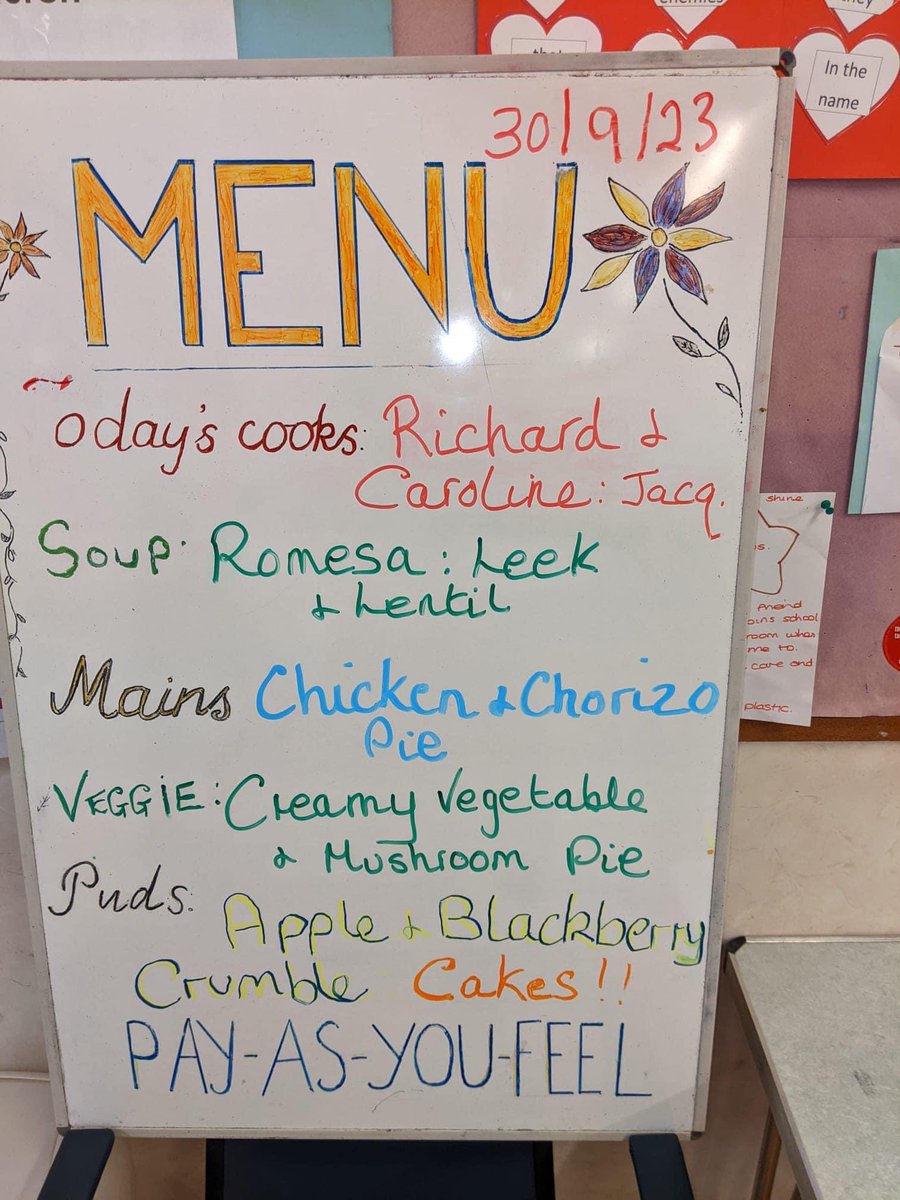 enemies
they
that
In the
name
30/9/23
MENU
Today's cooks: Richard &
Caroline: Jacq.
Soup: Romesa: Leek
& Lentil
Mains Chicken & Chorizo
Pie
VEGGIE: Creamy Vegetable
& Mushroom Pie
Puds:
Apple & Blackberry
Crumble Cakes!!
PAY-AS-YOU-FEEL
shine
school
room when
me to.
care and
plastic.